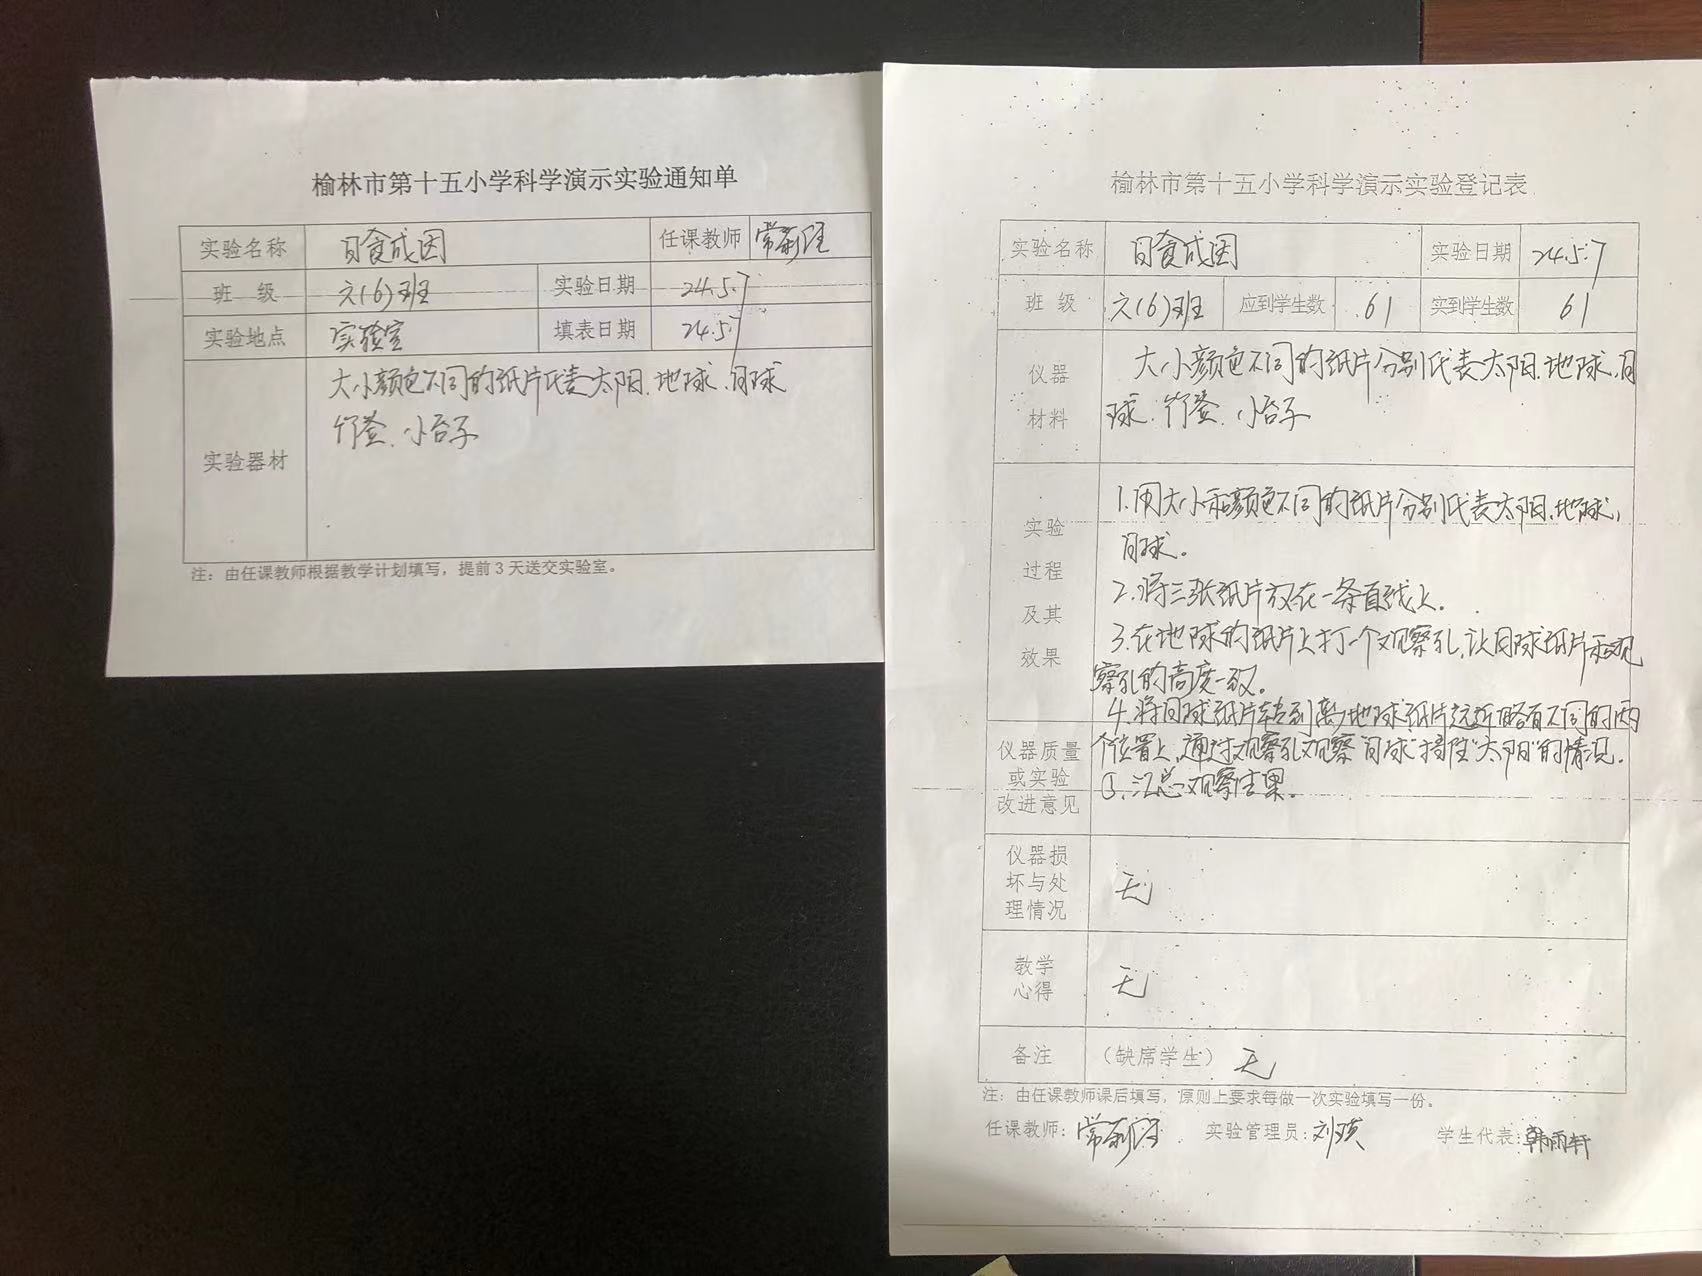 榆林市第十五小学科学演示实验通知单
实验名称 日食成因 任课教师
班 级 六(6)班 实验日期 24.5.7
实验地点 实验室 填表日期 24.5.7
实验器材
大小颜色不同的纸片代表太阳、地球、月球
竹签、小台子
注：由任课教师根据教学计划填写，提前 3 天送交实验室。
榆林市第十五小学科学演示实验登记表
实验名称 日食成因 实验日期 24.5.7
班 级 六(6)班 应到学生数 61 实到学生数 61
仪器
材料
大小颜色不同的纸片分别代表太阳、地球、月
球、竹签、小台子
实验
过程
及其
效果
1.用大小和颜色不同的纸片分别代表太阳、地球、
月球。
2.将三张纸片放在一条直线上。
3.在地球的纸片上打一个观察孔，让月球纸片和观
察孔的高度一致。
4.将月球纸片转到离地球纸片远近略有不同的两
个位置上，通过观察孔观察"月球"挡住"太阳"的情况。
5、汇总观察结果。
仪器质量
或实验
改进意见
仪器损
坏与处
理情况
无
教学
心得
无
备注 （缺席学生） 无
注：由任课教师课后填写，原则上要求每做一次实验填写一份。
任课教师： 实验管理员：刘瑛 学生代表：韩雨轩